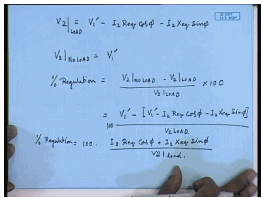 V2|LOAD = V1' - I2 Req Cosφ - I2 Xeq Sinφ
V2|NO LOAD = V1'
% Regulation = (V2|NO LOAD - V2|LOAD) / V2|LOAD × 100
= 100 (V1' - [V1' - I2 Req Cosφ - I2 Xeq Sinφ]) / V2 LOAD
% Regulation = 100 . (I2 Req Cosφ + I2 Xeq Sinφ) / V2|Load.